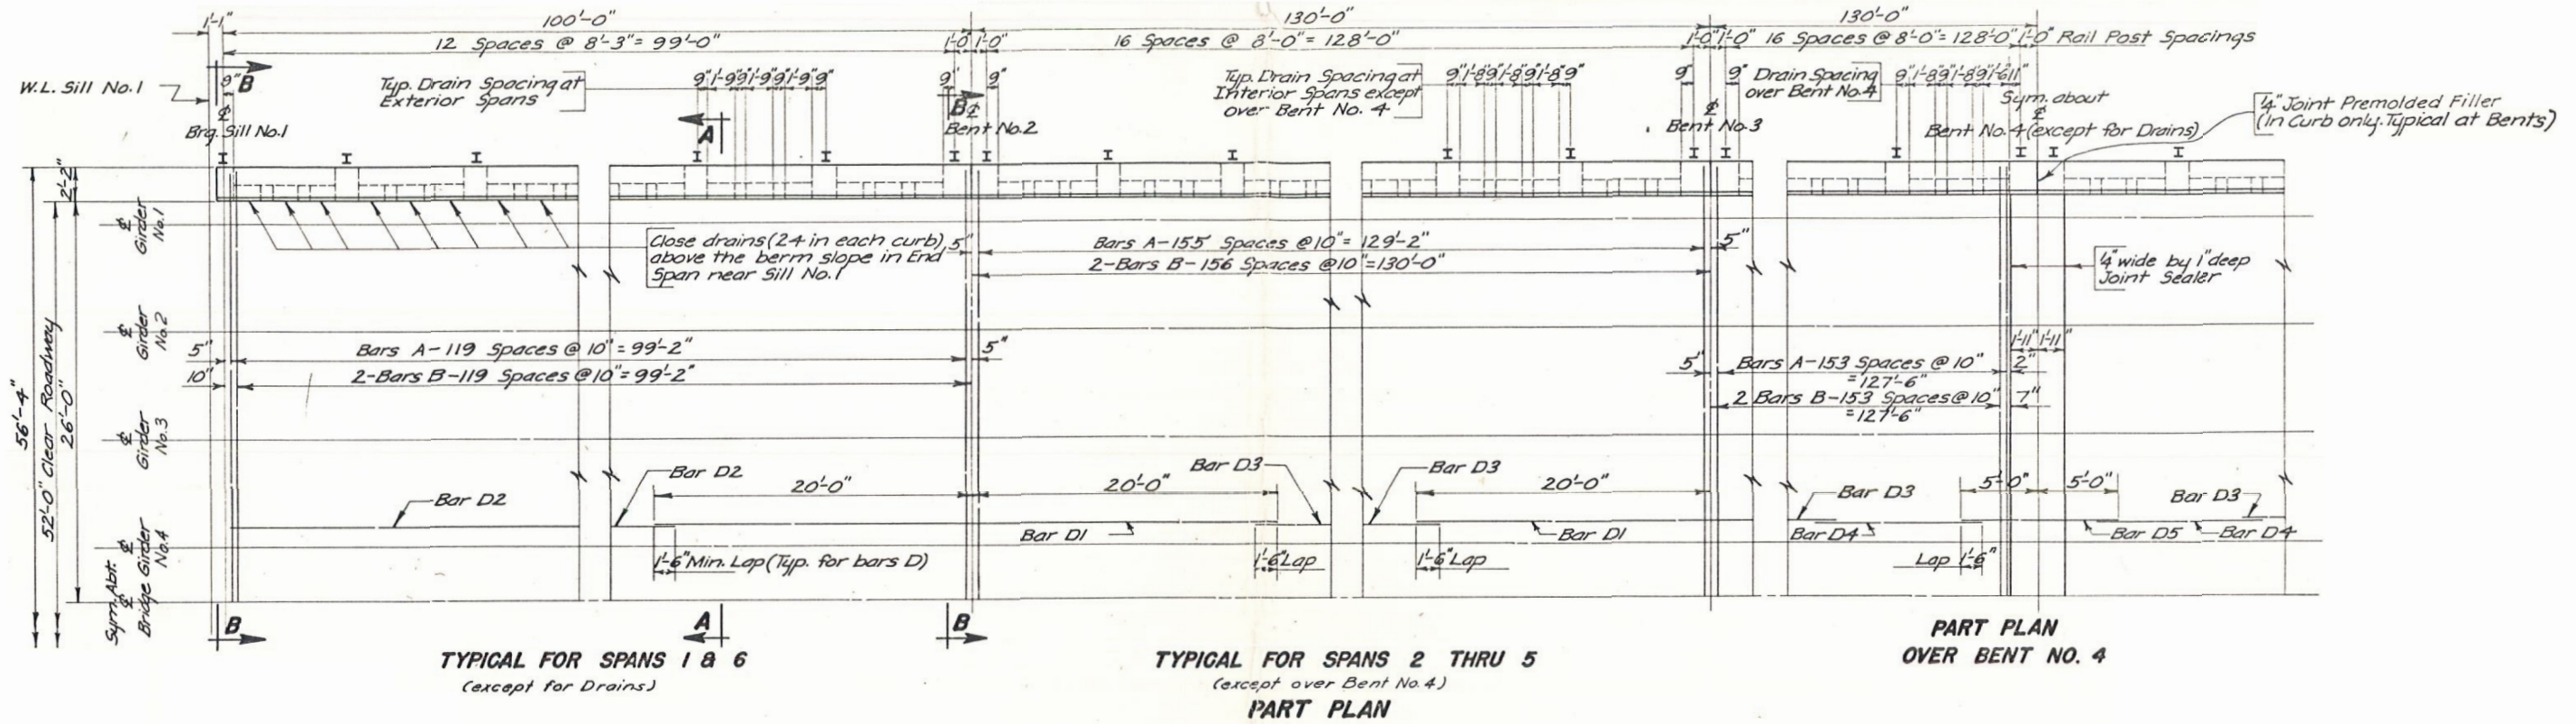 1'-1"
100'-0"
130'-0"
130'-0"
12 Spaces @ 8'-3"= 99'-0"
1'-0"
1'-0"
16 Spaces @ 8'-0"= 128'-0"
1'-0"
1'-0"
16 Spaces @ 8'-0"= 128'-0"
1'-0"
Rail Post Spacings
W.L. Sill No.1
9"
B
Typ. Drain Spacing at
Exterior Spans
9" 1'-9" 9" 1'-9" 9" 1'-9" 9"
9"
9"
Typ. Drain Spacing at
Interior Spans except
over Bent No. 4
9" 1'-8" 9" 1'-8" 9" 1'-8" 9"
9"
9"
Drain Spacing
over Bent No.4
9" 1'-8" 9" 1'-8" 9" 1'-6" 11"
℄
Brg. Sill No.1
A
B
℄
Bent No.2
℄
Bent No.3
Sym. about
℄
Bent No.4 (except for Drains)
1/4" Joint Premolded Filler
(In Curb only. Typical at Bents)
2'-2"
56'-4"
52'-0" Clear Roadway
26'-0"
℄
Girder
No.1
℄
Girder
No.2
℄
Girder
No.3
℄
Girder
No.4
Sym. Abt.
℄
Bridge
Close drains (24 in each curb)
above the berm slope in End
Span near Sill No.1
5"
Bars A-155 Spaces @ 10"= 129'-2"
2-Bars B-156 Spaces @10"=130'-0"
5"
1/4" wide by 1" deep
Joint Sealer
5"
Bars A-119 Spaces @ 10"= 99'-2"
5"
10"
2-Bars B-119 Spaces @10"= 99'-2"
1'-11"
1'-11"
5"
Bars A-153 Spaces @ 10"
=127'-6"
2"
2 Bars B-153 Spaces @ 10"
=127'-6"
7"
Bar D2
Bar D2
20'-0"
20'-0"
Bar D3
Bar D3
20'-0"
Bar D3
5'-0"
5'-0"
Bar D3
1'-6" Min. Lap (Typ. for bars D)
Bar D1
1'-6" Lap
1'-6" Lap
Bar D1
Bar D4
Lap 1'-6"
Bar D5
Bar D4
B
A
B
TYPICAL FOR SPANS 1 & 6
(except for Drains)
TYPICAL FOR SPANS 2 THRU 5
(except over Bent No.4)
PART PLAN
PART PLAN
OVER BENT NO. 4